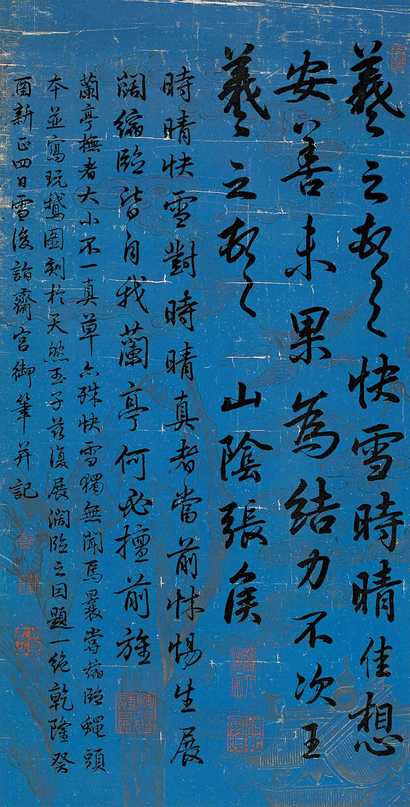 羲之頓首快雪時晴佳想
安善未果為結力不次王
羲之頓首 山陰張侯
時晴快雪對時晴真者當前怵惕生展
闊縮臨皆自我蘭亭何必擅前旌
蘭亭撫者大小不一真草亦殊快雪獨無聞焉曩嘗縮臨蠅頭
本並寫玩鵝圖刻於天然玉子茲復展濶臨之因題一絕乾隆癸
酉新正四日雪後詣齋宮御筆并記